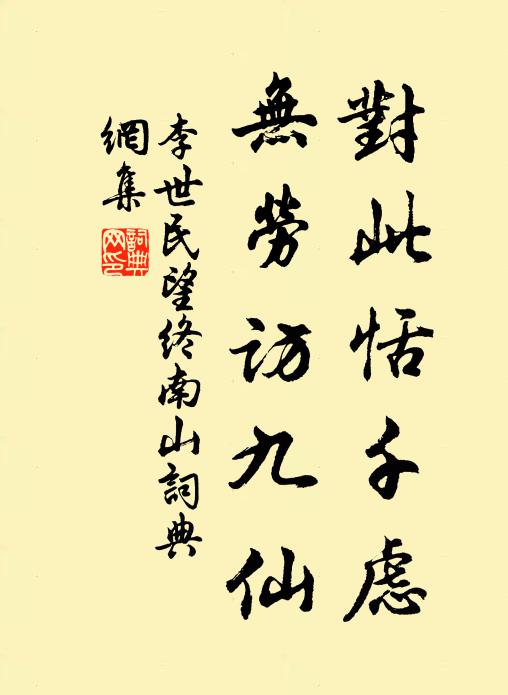 對此恬千慮
無勞訪九仙
李世民望终南山詞典
網集
詞典
网印